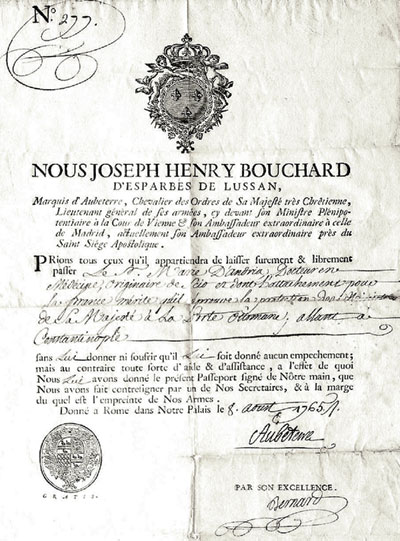 No. 277.
NOUS JOSEPH HENRY BOUCHARD
D'ESPARBES DE LUSSAN,
Marquis d'Aubeterre, Chevalier des Ordres de Sa Majesté très Chrêtienne,
Lieutenant général de ses armées, cy devant son Ministre Plénipo-
tentiaire à la Cour de Vienne & son Ambassadeur extraordinaire à celle
de Madrid, actuellement son Ambassadeur extraordinaire près du
Saint Siège Apostolique.
PRions tous ceux qu'il appartiendra de laisser surement & librement
passer Le Sr. Marc D'andria, Docteur en
Médecine, originaire de Scio et dont l'attachement pour
la france mérite qu'il éprouve la protection des Ministres
de Sa Majesté à La Porte Ottomane, allant à
Constantinople
sans Lui donner ni soufrir qu'il Lui soit donné aucun empechement;
mais au contraire toute sorte d'aide & d'assistance, a l'effet de quoi
Nous Lui avons donné le présent Passeport signé de Nôtre main, que
Nous avons fait contresigner par un de Nos Secretaires, & à la marge
du quel est l'empreinte de Nos Armes.
Donné a Rome dans Notre Palais le 8. aoust 1765
Aubeterre
GRATIS.
PAR SON EXCELLENCE.
Bernard